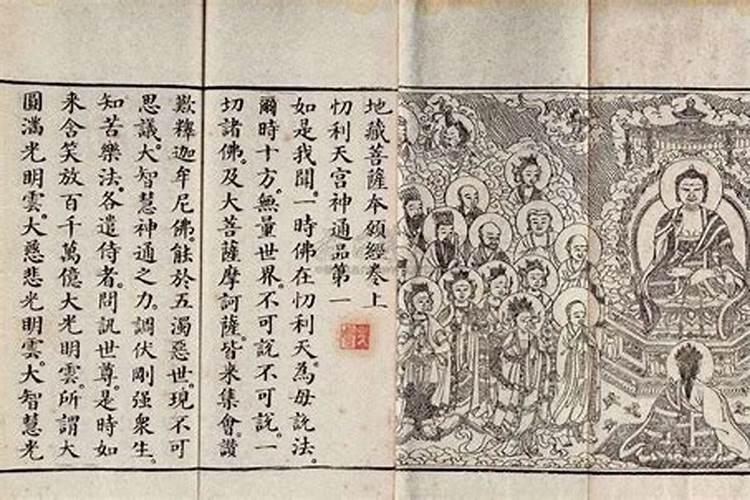 地藏菩薩本願經卷上
忉利天宮神通品第一
如是我聞。一時佛在忉利天。為母說法。
爾時十方無量世界。不可說不可說。一
切諸佛。及大菩薩摩訶薩。皆來集會。讚
歎釋迦牟尼佛。能於五濁惡世。現不可
思議。大智慧神通之力。調伏剛强衆生。
知苦樂法。各遣侍者。問訊世尊。是時如
來含笑。放百千萬億大光明雲。所謂大
圓滿光明雲。大慈悲光明雲。大智慧光